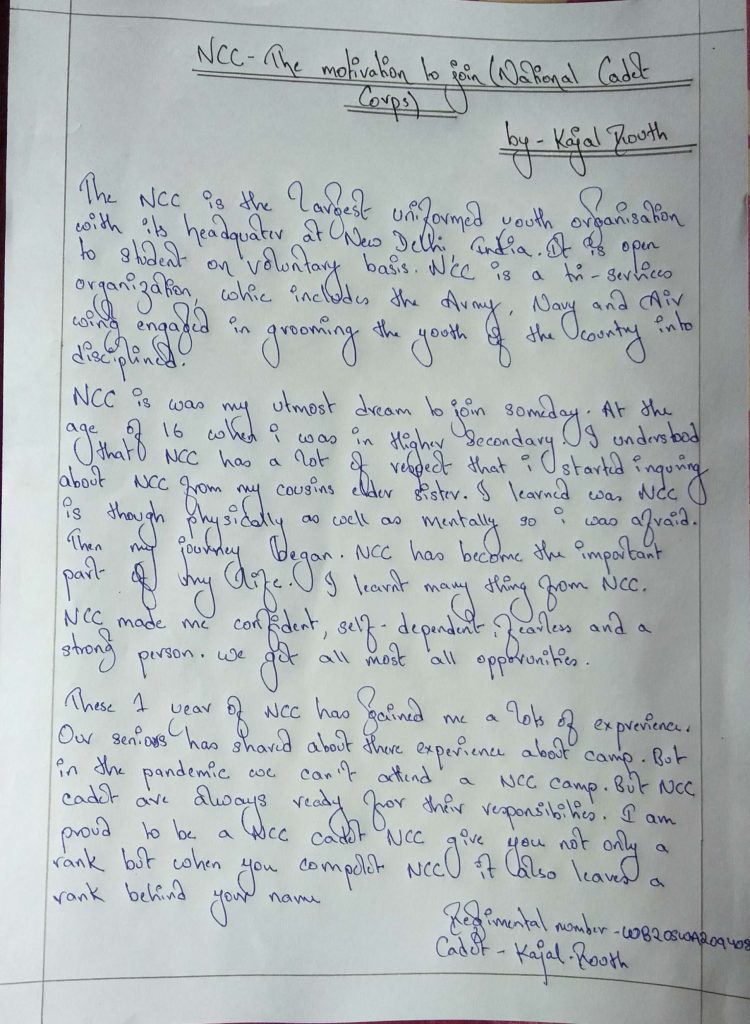 NCC - The motivation to join (National Cadet
Corps)
by - Kajal Routh
The NCC is the largest uniformed youth organisation
with its headquater at New Delhi, India. It is open
to student on voluntary basis. NCC is a tri-services
organization, whic includes the Army, Navy and Air
wing engaged in grooming the youth of the country into
disciplined.
NCC is was my utmost dream to join someday. At the
age of 16 when i was in Higher Secondary. I understood
that NCC has a lot of respect that i started inquring
about NCC from my cousins elder sister. I learned was NCC
is though physically as well as mentally so i was afraid.
Then my journey began. NCC has become the important
part of my life. I learnt many thing from NCC.
NCC made me confident, self-dependent, fearless and a
strong person. we get all most all opporunities.
These 1 year of NCC has gained me a lots of exprerience.
Our seniors has shared about there experience about camp. But
in the pandemic we can't attend a NCC camp. But NCC
cadet are always ready for their responsibities. I am
proud to be a NCC cadet NCC give you not only a
rank but when you compelet NCC it also leaves a
rank behind your name
Regimental number - WB20SWA209408
Cadet - Kajal. Routh